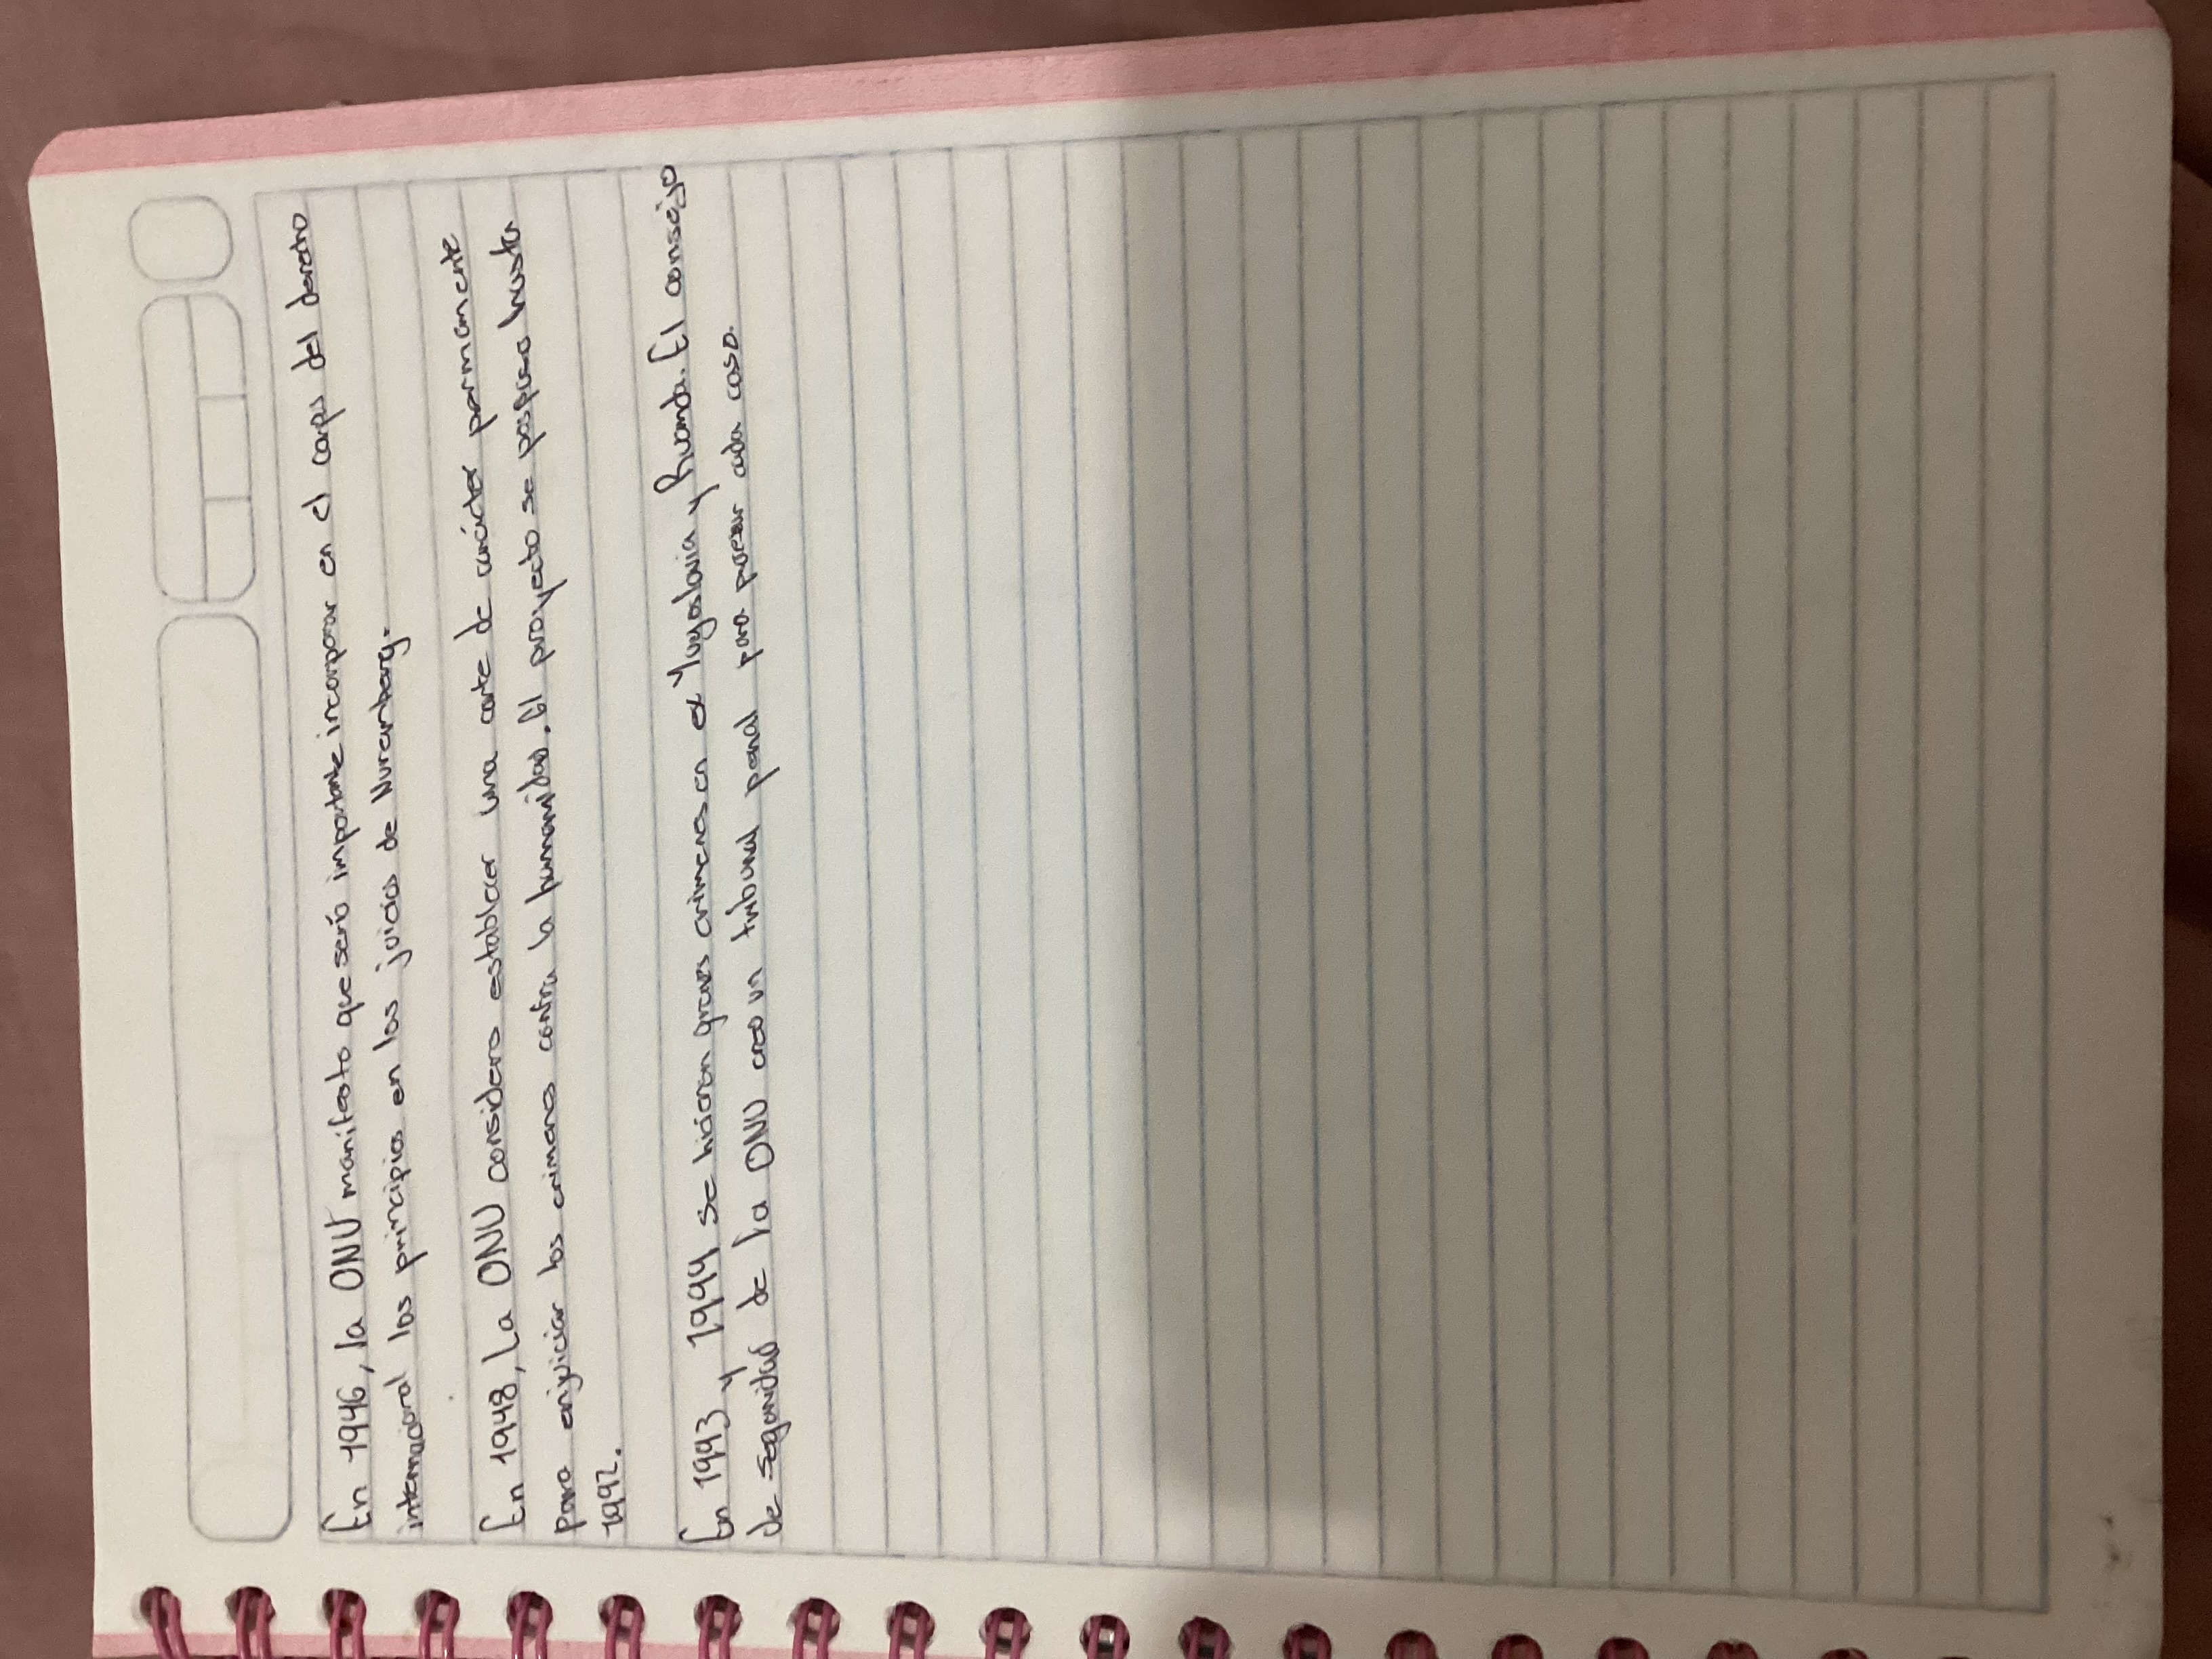 En 1946, la ONU manifesto que serio importante incorporar en el corps del derecho
internacional los principios en los juicios de Nuremberg.
En 1948, La ONU considero establecer una corte de carácter permanente
para enjuiciar los crimenes contra la humanidad. El proyecto se pospuso hasta
1992.
En 1993 y 1994 se hicieron graves crimenes en ex Yugoslavia y Ruanda. El consejo
de seguridad de la ONU creo un tribunal penal para cada caso.